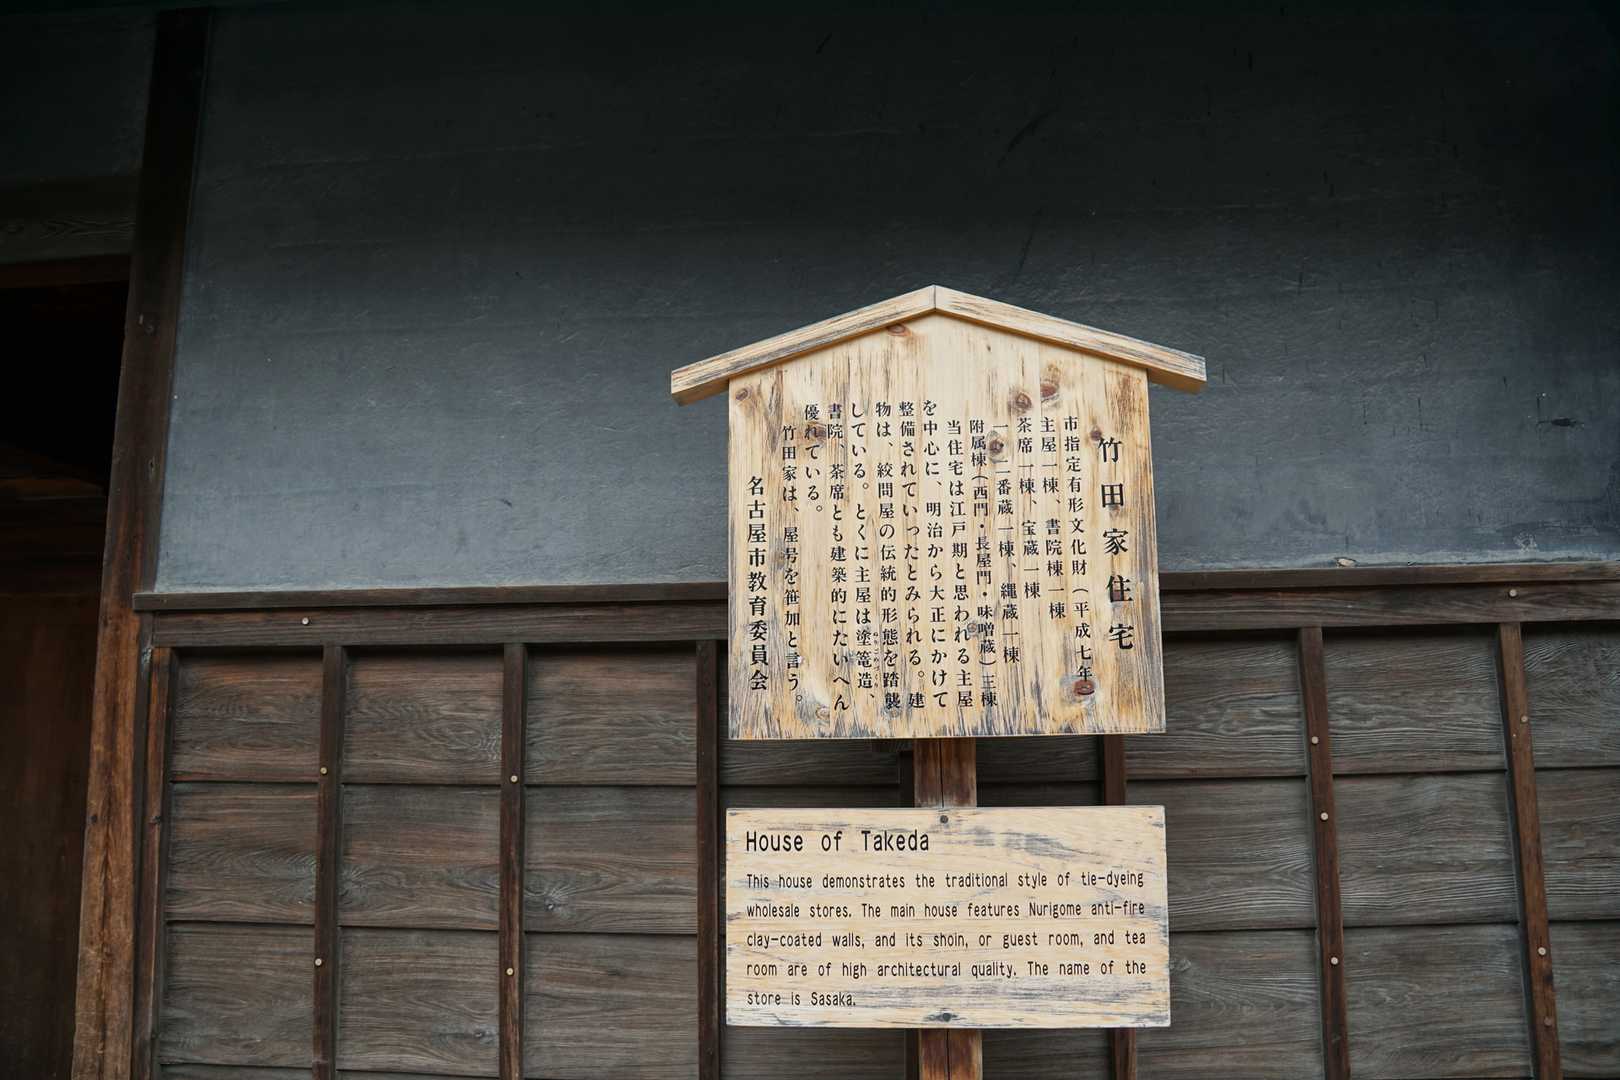 竹田家住宅
市指定有形文化財（平成七年）
主屋一棟、書院棟一棟
茶席一棟、宝蔵一棟
一・二番蔵一棟、縄蔵一棟
附属棟（西門・長屋門・味噌蔵）三棟
当住宅は江戸期と思われる主屋
を中心に、明治から大正にかけて
整備されていったとみられる。建
物は、絞問屋の伝統的形態を踏襲
している。とくに主屋は塗篭造、
ぬりごめづくり
書院、茶席とも建築的にたいへん
優れている。
竹田家は、屋号を笹加と言う。
名古屋市教育委員会
House of Takeda
This house demonstrates the traditional style of tie-dyeing
wholesale stores. The main house features Nurigome anti-fire
clay-coated walls, and its shoin, or guest room, and tea
room are of high architectural quality. The name of the
store is Sasaka.